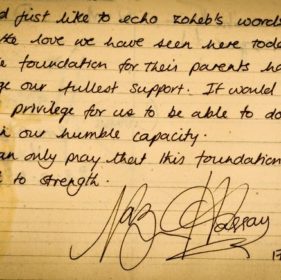 d just like to echo zoheb's words
the love we have seen here toda
e foundation for their parents ha
ge our fullest support. It would
privilege for us to be able to do
our humble capacity.
an only pray that this foundation
to strength.
Naz Hassan
17